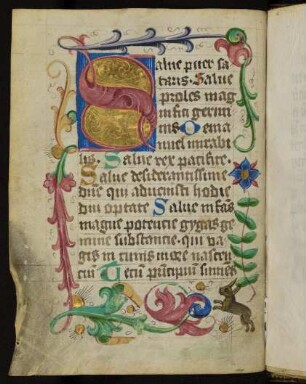 Salue puer sa
taris · Salue
proles mag
nifici germi
nis O ema
nuel mirabi
lis Salue rex pacifice
Salue desiderantissime
dñe qui aduenisti hodie
diu optate Salue infās
magne potencie gygas ge
mine substancie · qui va
gis in cunis more nascen
cui Eterni principii sumēs